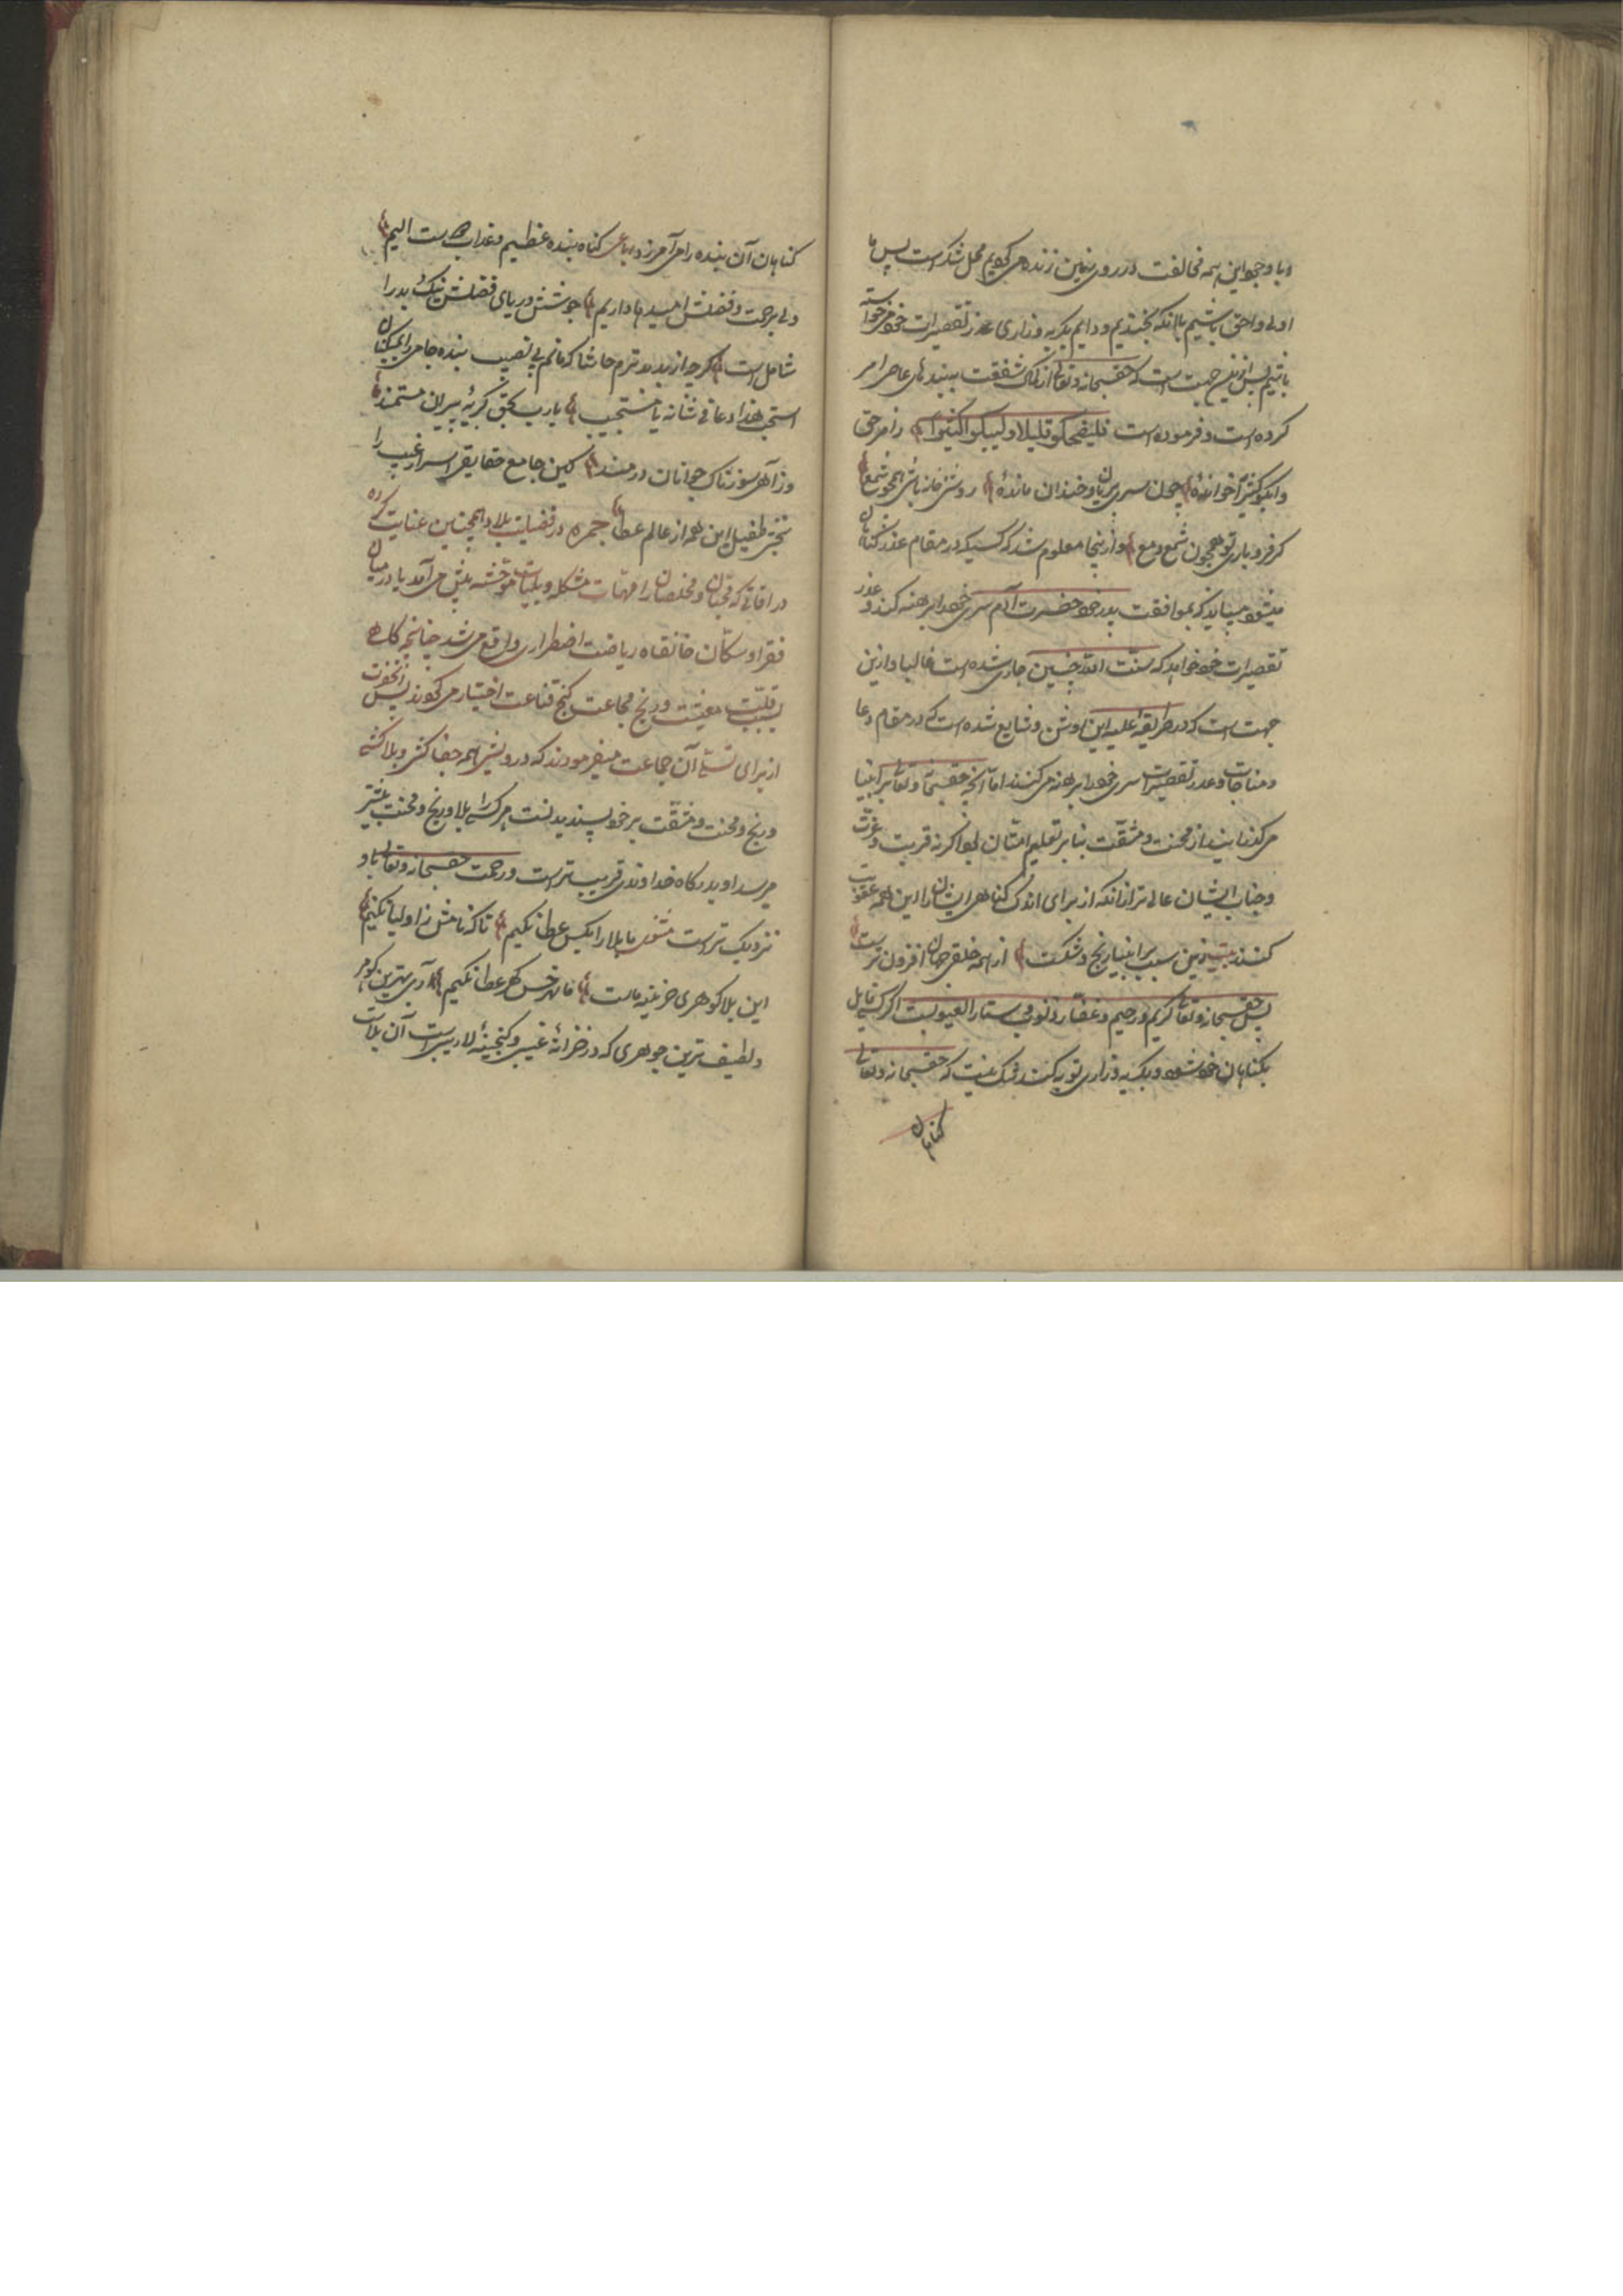 و با وجود این همه مخالفت در روی زمین زنده می گردیم محل شکر است پس ما
اولی و احق باشیم بآنکه نخندیم و دایم بگریه و زاری عذر تقصیرات خود می خواسته
باشیم پس ازین جهت است که حقسبحانه و تعالی از کمال شفقت ببندهای عاصی امر
کرده است و فرموده است فلیضحکو قلیلا ولیبکوا کثیرا زامر حق
وابکو کثیرا خوانده چون سر بریان و خندان مانده روشنی خانه باشی همچو شمع
گر فرو باری تو همچون شمع دمع و ازینجا معلوم شد که کسیکه در مقام عذر گناهان
میشود میباید که بموافقت پدر خود حضرت آدم سر خود را برهنه کند و عذر
تقصیرات خود خواهد که سنت الله چنین جاری شده است غالبا و ازین
جهت است که در طریقه علیه این روش و شایع شده است که در مقام دعا
و مناجات و عذر تقصیرات سر خود را برهنه می کنند اما آنچه حقسبحانه و تعالی بر انبیا
می گذراند از محنت و مشقت بنا بر تعلیم امتان بود اگر نه قربت و عزت
و جناب ایشان عالی تر از آنکه از برای اندک گناهی ایشان را این همه عقوبت
کنند بیت زین سبب بر انبیا رنج و شکست از همه خلق جهان افزون ترست
پس حقسبحانه و تعالی کریم و رحیم و غفار ذنوب و ستار العیوبست اگر کسی قایل
بگناهان خود شود و بگریه و زاری توبه کند شک نیست که حقسبحانه و تعالی
گناهان
گناهان آن بنده را می آمرزد رباعی گناه بنده عظیم و عذاب هست الیم
ولی برحمت و فضلش امیدها داریم جوشش دریای فضلش نیک و بد را
شامل است گرچه از بد بدترم حاشا که مانم بی نصیب بنده جامی را بمسکینان
استجب هذا دعائی شأنه یا مستجیب یا رب بحق گریه پیران مستمند
وز آه سوزناک جوانان دردمند کین جامع حقایق اسرار غیب را
بطفیل این همه از عالم عطا جمره در فضیلت بلا و همچنین عنایت کرده
در اوقاتی که محبان و مخلصان را مهمات مشکله و بلیات موحشه پیش می آمد یا در میان
فقرا و سکان خانقاه ریاضت اضطراری واقع می شد چنانچه گاهی
بسبب قلت معیشت و رنج مجاعت کنج قناعت اختیار می کردند پس آنحضرت
از برای تسلی آن جماعت میفرمودند که درویشی همه جفا کشی و بلا کشی
و رنج و محنت و مشقت بر خود پسندیدنست هر کسی را بلا و رنج و محنت بیشتر
میرسد او بدرگاه خداوندی قریب تر است و رحمت حقسبحانه و تعالی باو
نزدیک تر است مثنوی ما بلا را بکس عطا نکنیم تا که نامش ز اولیا نکنیم
این بلا گوهری خزینه ماست ما بهر خس گهر عطا نکنیم آری بهترین گوهر
و لطیف ترین جوهری که در خزانه غیبی و گنجینه لاریبی است آن بلاست